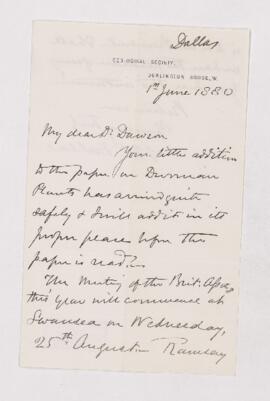 Dallas
GEOLOGICAL SOCIETY,
BURLINGTON HOUSE, W.
1st June 1880
My dear Dr Dawson
Your little addition
to the paper on Devonian
Plants has arrived quite
safely & I will add it in its
proper place when the
paper is read.
The Meeting of the Brit: Assoc:
this year will commence at
Swansea on Wednesday,
25th August. Ramsay